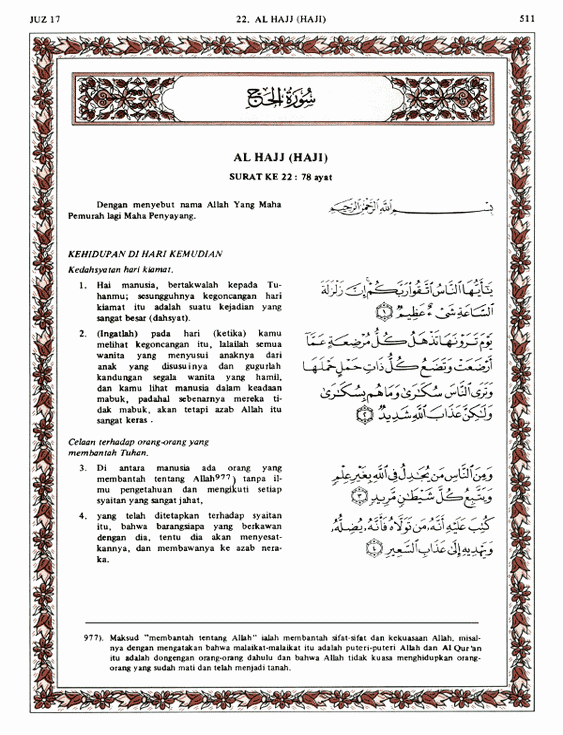 JUZ 17
22. AL HAJJ (HAJI)
511
سُورَةُ الحَجّ
AL HAJJ (HAJI)
SURAT KE 22 : 78 ayat
Dengan menyebut nama Allah Yang Maha
Pemurah lagi Maha Penyayang.
بِسْمِ اللَّهِ الرَّحْمَٰنِ الرَّحِيمِ
KEHIDUPAN DI HARI KEMUDIAN
Kedahsyatan hari kiamat.
1. Hai manusia, bertakwalah kepada Tu-
hanmu; sesungguhnya kegoncangan hari
kiamat itu adalah suatu kejadian yang
sangat besar (dahsyat).
يَٰٓأَيُّهَا ٱلنَّاسُ ٱتَّقُوا۟ رَبَّكُمْ إِنَّ زَلْزَلَةَ
ٱلسَّاعَةِ شَىْءٌ عَظِيمٌ ﴿١﴾
2. (Ingatlah) pada hari (ketika) kamu
melihat kegoncangan itu, lalailah semua
wanita yang menyusui anaknya dari
anak yang disusuinya dan gugurlah
kandungan segala wanita yang hamil,
dan kamu lihat manusia dalam keadaan
mabuk, padahal sebenarnya mereka ti-
dak mabuk, akan tetapi azab Allah itu
sangat keras .
يَوْمَ تَرَوْنَهَا تَذْهَلُ كُلُّ مُرْضِعَةٍ عَمَّآ
أَرْضَعَتْ وَتَضَعُ كُلُّ ذَاتِ حَمْلٍ حَمْلَهَا
وَتَرَى ٱلنَّاسَ سُكَٰرَىٰ وَمَا هُم بِسُكَٰرَىٰ
وَلَٰكِنَّ عَذَابَ ٱللَّهِ شَدِيدٌ ﴿٢﴾
Celaan terhadap orang-orang yang
membantah Tuhan.
3. Di antara manusia ada orang yang
membantah tentang Allah977) tanpa il-
mu pengetahuan dan mengikuti setiap
syaitan yang sangat jahat,
وَمِنَ ٱلنَّاسِ مَن يُجَٰدِلُ فِى ٱللَّهِ بِغَيْرِ عِلْمٍ
وَيَتَّبِعُ كُلَّ شَيْطَٰنٍ مَّرِيدٍ ﴿٣﴾
4. yang telah ditetapkan terhadap syaitan
itu, bahwa barangsiapa yang berkawan
dengan dia, tentu dia akan menyesat-
kannya, dan membawanya ke azab nera-
ka.
كُتِبَ عَلَيْهِ أَنَّهُۥ مَن تَوَلَّاهُ فَأَنَّهُۥ يُضِلُّهُۥ
وَيَهْدِيهِ إِلَىٰ عَذَابِ ٱلسَّعِيرِ ﴿٤﴾
977). Maksud "membantah tentang Allah" ialah membantah sifat-sifat dan kekuasaan Allah, misal-
nya dengan mengatakan bahwa malaikat-malaikat itu adalah puteri-puteri Allah dan Al Qur'an
itu adalah dongengan orang-orang dahulu dan bahwa Allah tidak kuasa menghidupkan orang-
orang yang sudah mati dan telah menjadi tanah.